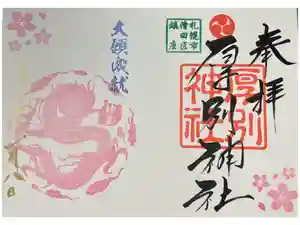 奉拝
厚別神社
厚別神社
札幌市
清田区
鎮座
大願成就
月
日